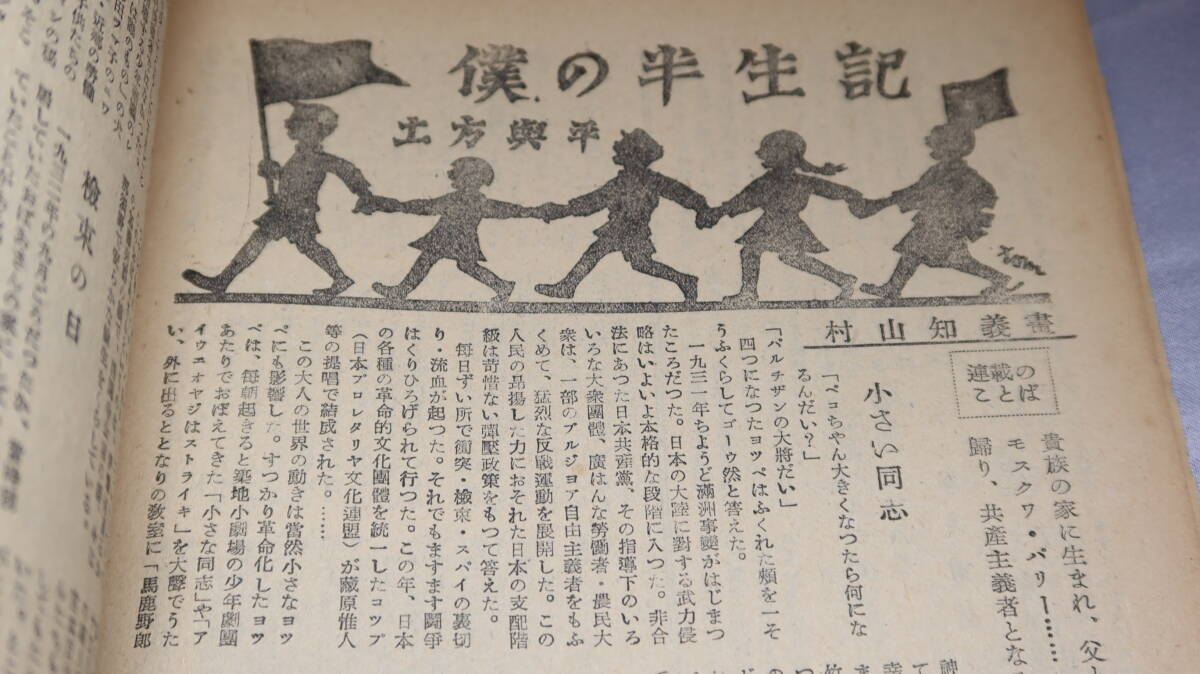 僕の半生記
土方與平
tom
村山知義畫
のば
載と
連こ
貴族の家に生まれ、父
モスクワ・パリー……
歸り、共産主義者とな
小さい同志
「ペコちやん大きくなつたら何にな
るんだい？」
「パルチザンの大將だい」
四つになつたヨツペはふくれた頬を一そ
うふくらしてゴーウ然と答えた。
一九三一年ちようど滿洲事變がはじまつ
たころだつた。日本の大陸に對する武力侵
略はいよいよ本格的な段階に入つた。非合
法にあつた日本共産黨、その指導下のいろ
いろな大衆團體、廣はんな勞働者・農民大
衆は、一部のブルジヨア自由主義者をもふ
くめて、猛烈な反戰運動を展開した。この
人民の昂揚した力におそれた日本の支配階
級は苛惜ない彈壓政策をもつて答えた。
毎日ずい所で衝突・檢束・スパイの裏切
り・流血が起つた。それでもますます鬪爭
はくりひろげられて行つた。この年、日本
の各種の革命的文化團體を統一したコツプ
（日本プロレタリヤ文化連盟）が藏原惟人
等の提唱で結成された。……
この大人の世界の動きは當然小さなヨツ
ペにも影響した。すつかり革命化したヨツ
ペは、毎朝起きると築地小劇場の少年劇團
あたりでおぼえてきた「小さな同志」や「ア
イウエオヤジはストライキ」を大聲でうた
い、外に出るととなりの教室に「馬鹿野郎
檢束の日
一九三二年の九月ごろだつたか、
居していたおばあさんの家で